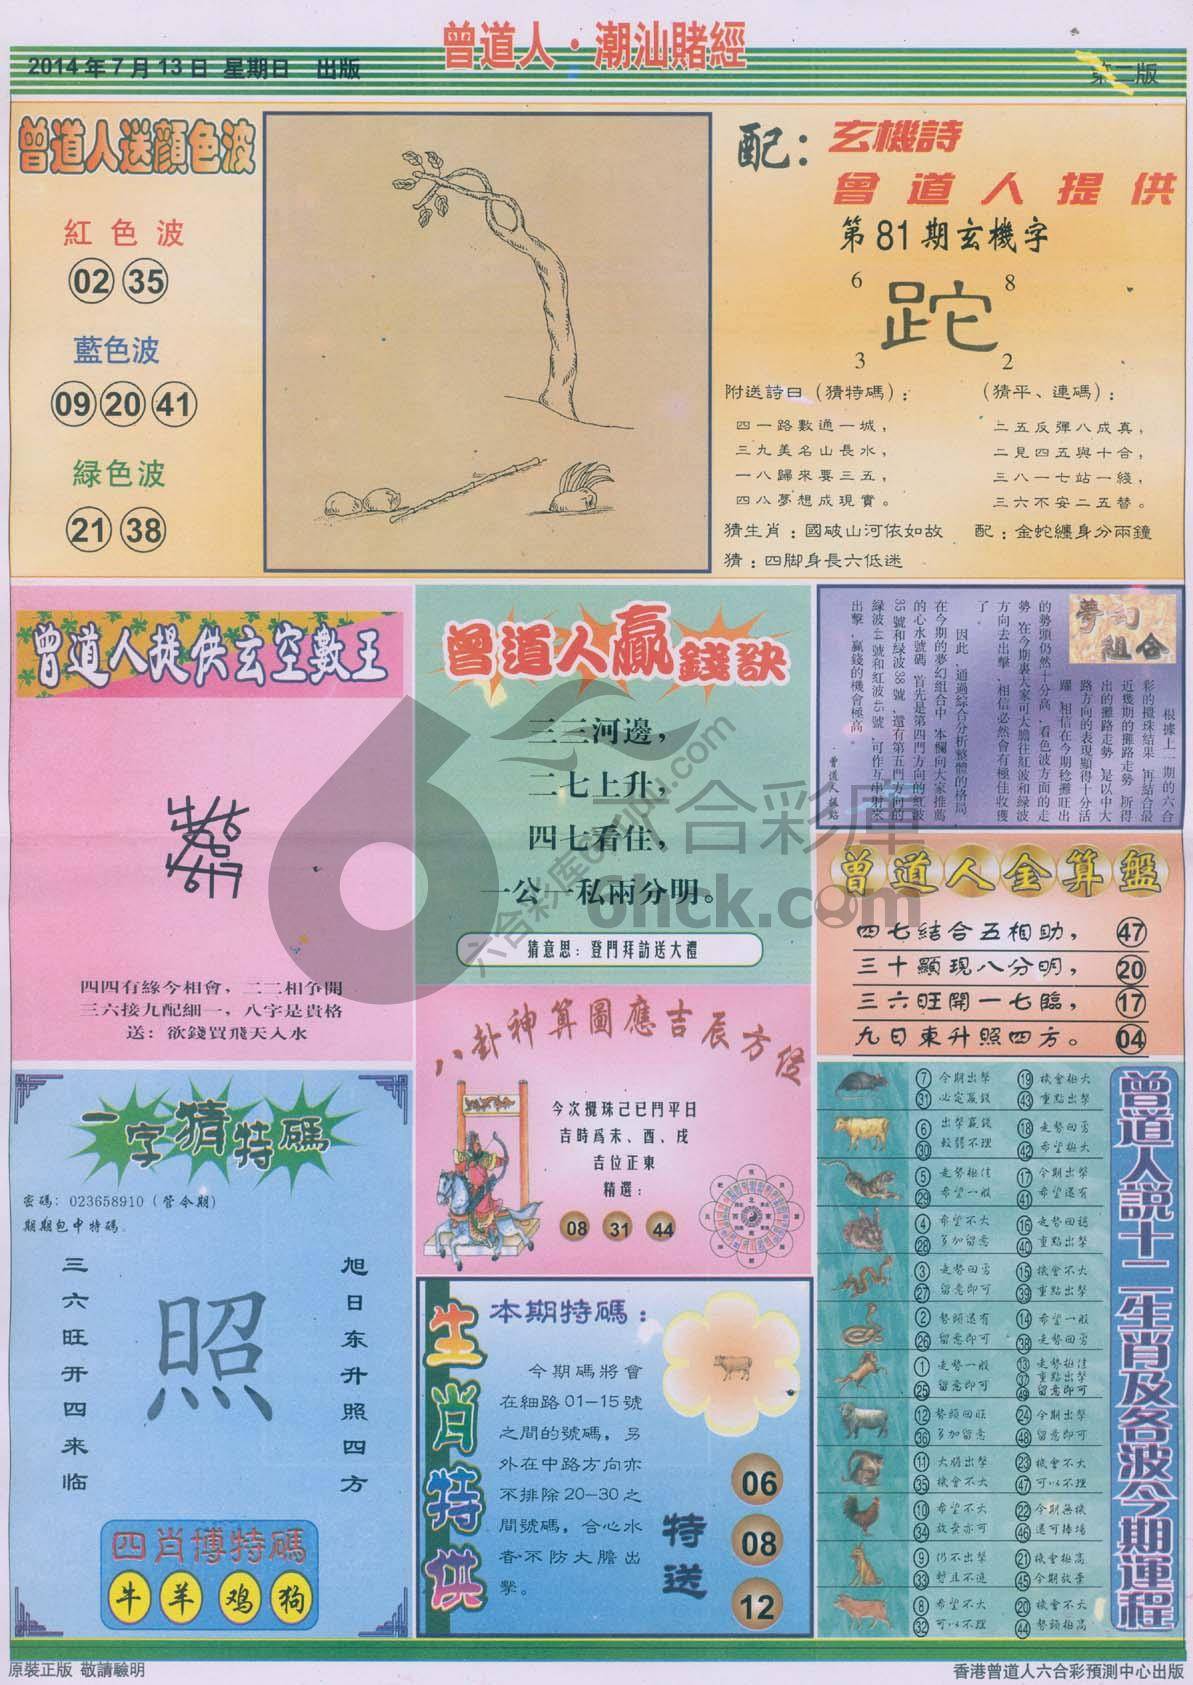 曾道人·潮汕賭經
2014年7月13日 星期日 出版
第二版
曾道人送顔色波
紅色波
02 35
藍色波
09 20 41
緑色波
21 38
配：
玄機詩
曾道人提供
第81期玄機字
6 8
跎
3 2
附送詩曰（猜特碼）：
四一路數通一城，
三九美名山長水，
一八歸來要三五，
四八夢想成現實。
（猜平、連碼）：
二五反彈八成真，
二見四五與十合，
三八一七站一綫，
三六不安二五替。
猜生肖：國破山河依如故
配：金蛇纏身分兩鐘
猜：四脚身長六低迷
曾道人提供玄空數王
四四有緣今相會，二二相爭開
三六接九配細一，八字是貴格
送：欲錢買飛天入水
曾道人贏錢訣
三三河邊，
二七上升，
四七看住，
一公一私兩分明。
猜意思：登門拜訪送大禮
夢幻組合
根據上一期的六合
彩的攪珠結果，再結合最
近幾期的攤路走勢，所得
出的攤路走勢，是以中大
路方向的表現顯得十分活
躍，相信在今期稔攤旺出
的勢頭仍然十分高，看色波方面的走
勢，在今期裏大家可大膽往紅波和緑波
方向去出擊，相信必然會有極佳收獲
了。
因此，通過綜合分析整體的格局，
在今期的夢幻組合中，本欄向大家推薦
的心水號碼，首先是第四門方向的紅波
35號和緑波38號，還有第五門方向的
緑波44號和紅波45號，可作互串財來
出擊，贏錢的機會極高。
·曾道人報點
曾道人金算盤
四七結合五相助， 47
三十顯現八分明， 20
三六旺開一七臨， 17
九日東升照四方。 04
八卦神算圖應吉辰方位
今次攪珠己巳鬥平日
吉時爲未、酉、戌
吉位正東
精選：
08 31 44
一字猜特碼
密碼：023658910（管令期）
期期包中特碼。
三六旺开四来临
照
旭日东升照四方
四肖博特碼
牛 羊 鸡 狗
生肖特供
本期特碼：
今期碼將會
在細路01－15號
之間的號碼，另
外在中路方向亦
不排除20－30之
間號碼，合心水
者不防大膽出
擊。
特送
06
08
12
曾道人説十二生肖及各波今期運程
7 今期出擊 19 機會極大
31 必定贏錢 43 重點出擊
6 出擊贏錢 18 走勢回勇
30 較弱不理 42 希望極大
5 走勢極佳 17 今期出擊
29 希望一般 41 希望還有
4 希望不大 16 走勢回穩
28 多加留意 40 重點出擊
3 走勢回勇 15 機會不大
27 留意即可 39 重點出擊
2 勢頭還有 14 希望一般
26 留意即可 38 走勢回勇
1 走勢一般 13 走勢極佳
25 留意即可 37 重點出擊
49 留意即可
12 勢頭回旺 24 今期出擊
36 多加留意 48 留意即可
11 大膽出擊 23 機會不大
35 機會不大 47 可以不理
10 希望不大 22 今期無機
34 放棄亦可 46 還可捧場
9 仍不出擊 21 機會極高
33 暫且不追 45 今期放棄
8 希望不大 20 機會不大
32 可以不理 44 勢頭極高
六合彩庫
6hck.com
原裝正版 敬請驗明
香港曾道人六合彩預測中心出版